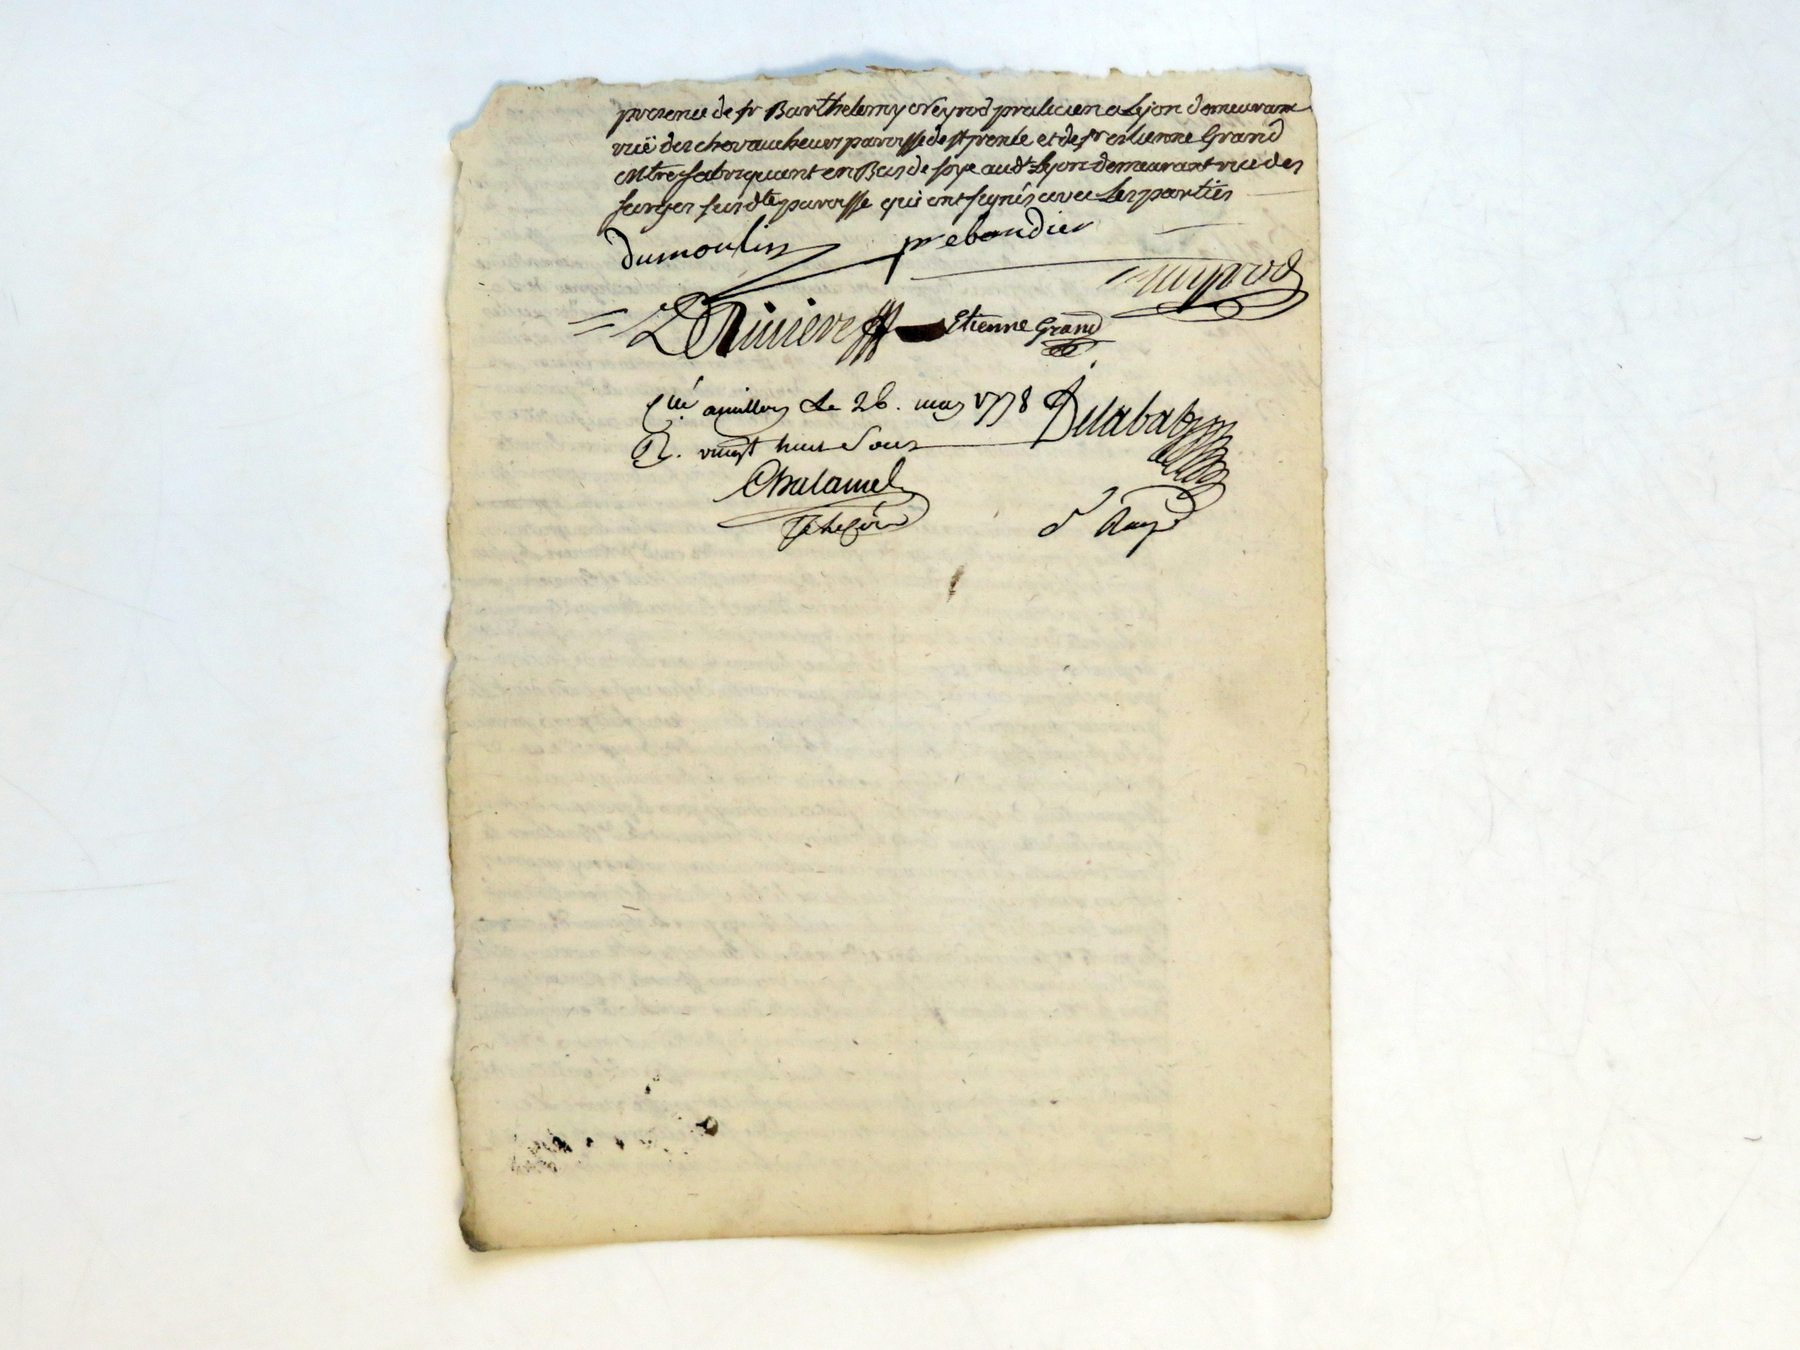 presence de sr Barthelemy Neyrod praticien a Lyon demeurant
ruë des chevaucheurs paroisse de st Irenée et de sr etienne Grand
Mtre fabriquant en Bas de soye audt Lyon demeurant rue des
farges susdte paroisse qui ont signés avec Les parties
Dumoulin prebandier
Neyrod
Riviere Etienne Grand
Le 26. may 1778 Delabat
R. vingt huit sous
Chalamel